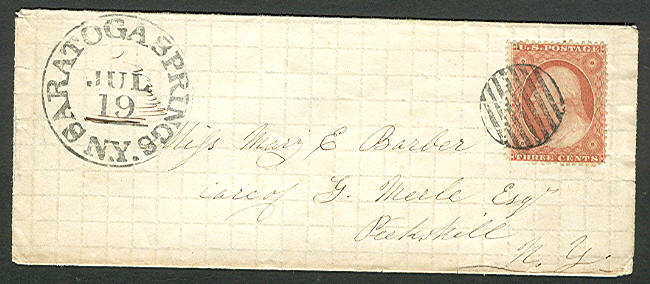 SARATOGA SPRINGS N.Y.
JUL
19
U.S. POSTAGE
THREE CENTS
Miss Mary E Barber
care of G. Merle Esqr
Peekskill
N. Y.